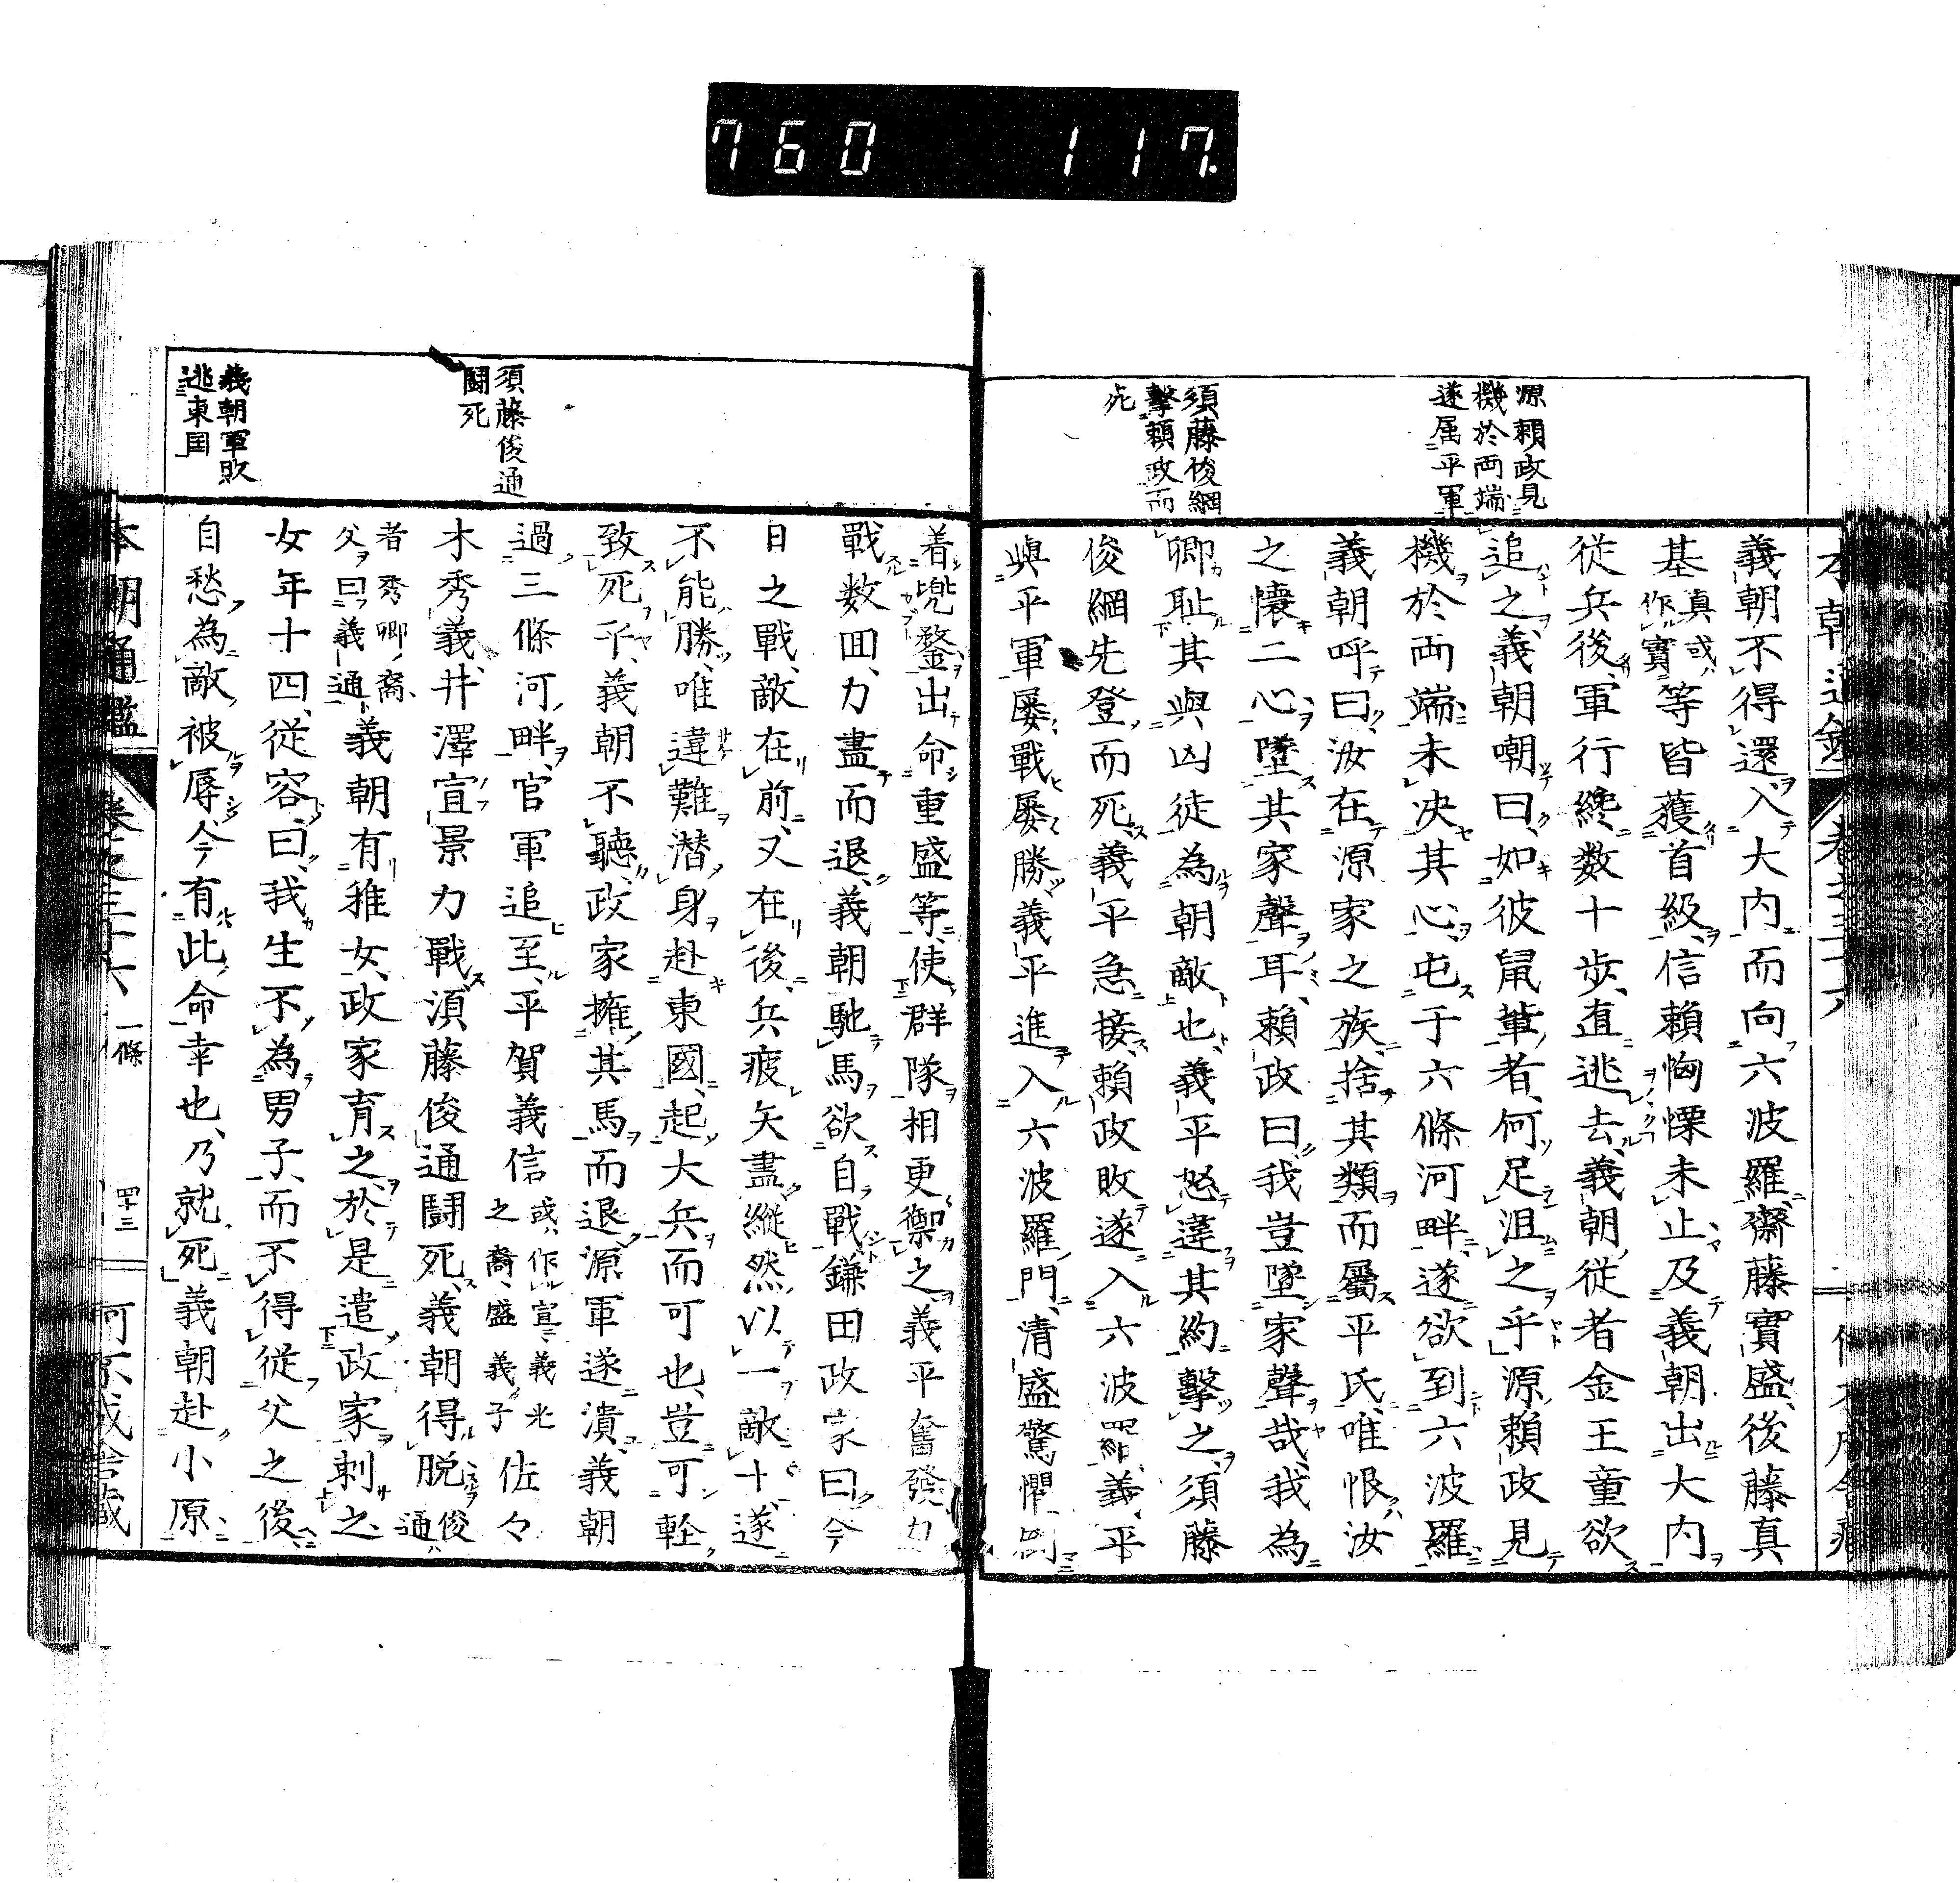 760 117.
源賴政見
機於両端
遂属平軍
須藤俊綱
擊賴政而
死
義朝不得還入大内而向六波羅齋藤實盛後藤真
基真或作實等皆獲首級信賴恟慄未止及義朝出大内
從兵後軍行纔数十歩直逃去義朝從者金王童欲
追之義朝嘲曰如彼鼠軰者何足沮之乎源賴政見
機於両端未决其心屯于六條河畔遂欲到六波羅
義朝呼曰汝在源家之族捨其類而屬平氏唯恨汝
之懷二心墜其家聲耳賴政曰我豈墜家聲哉我為
卿恥其與凶徒為朝敵也義平怒違其約擊之須藤
俊綱先登而死義平急接賴政敗遂入六波羅義平
與平軍屡戰屡勝義平進入六波羅門清盛驚懼
須藤俊通
闘死
義朝軍敗
逃東国
着兜鍪出命重盛等使群隊相更禦之義平奮發力
戰数囬力盡而退義朝馳馬欲自戰鎌田政家曰今
日之戰敵在前又在後兵疲矢盡縦然以一敵十遂
不能勝唯違難潜身赴東國起大兵而可也豈可輕
致死乎義朝不聽政家擁其馬而退源軍遂潰義朝
過三條河畔官軍追至平賀義信或作宣義光之裔盛義子佐々
木秀義井澤宣景力戰須藤俊通闘死義朝得脱俊通
者秀卿裔父曰義通義朝有稚女政家育之於是遣政家刺之
女年十四從容曰我生不為男子而不得從父之後
自愁為敵被辱今有此命幸也乃就死義朝赴小原
本朝通鑑 卷之三十六 一條 四十三